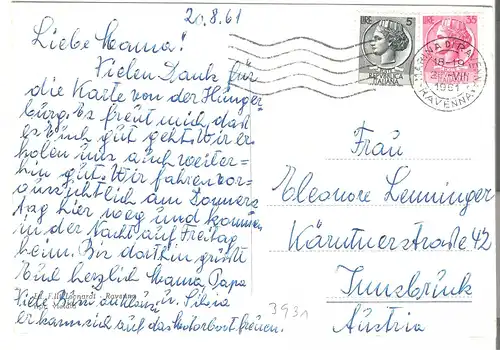 20.8.61
Liebe Mama!
Vielen Dank für
die Karte von der Hunger=
burg. Es freut mich das
es Euch gut geht. Wir er=
holen uns auch weiter=
hin gut. Wir fahren vor=
aussichtlich am Donners
tag hier weg und kommen
in der Nacht auf Freitag
heim. Bis dorthin grüßt
Euch herzlich Mama, Papa
Viele Bussi
u. Silvia
er kann sich auf das Motorboot freuen.
F.lli Leonardi - Ravenna
LIRE 5
LIRE 35
REPVBBLICA
ITALIANA
MARINA DI RAVENNA
18-19
VIII
1961
(RAVENNA)
Frau
Eleonore Lenninger
Kärntnerstraße 42
Innsbruck
Austria
3931